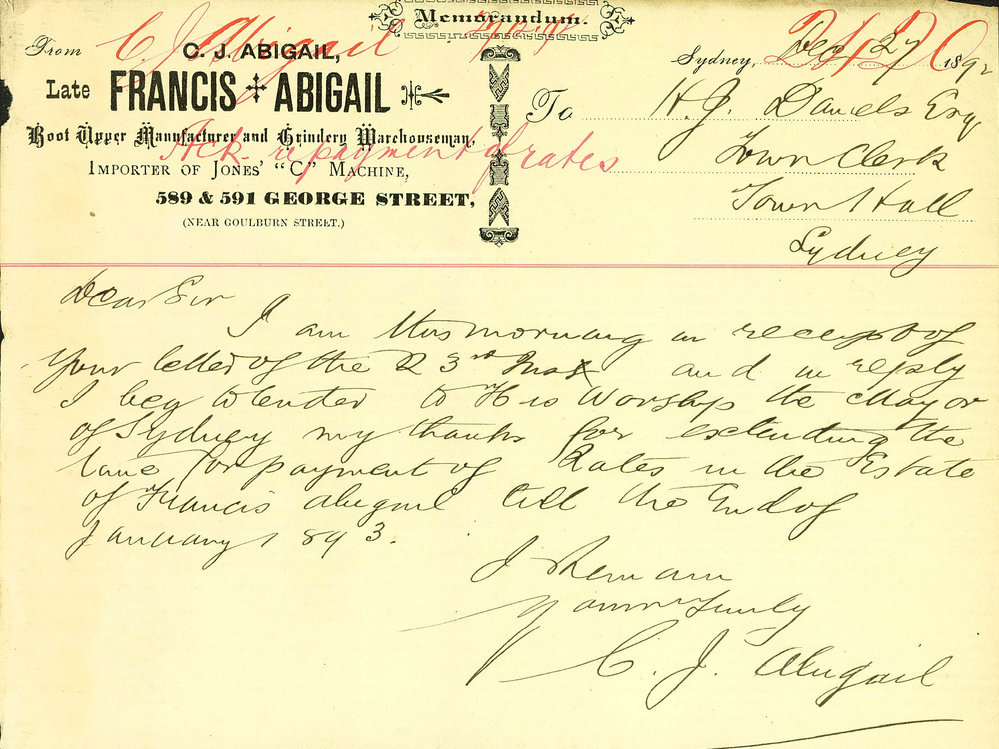 Memorandum.
From C. J. Abigail
C. J. ABIGAIL,
Late FRANCIS ABIGAIL
Boot Upper Manufacturer and Grindery Warehouseman,
Ack. repayment of rates
IMPORTER OF JONES' "C" MACHINE,
589 & 591 GEORGE STREET,
(NEAR GOULBURN STREET.)
Sydney, Dec 27 1892
To H. J. Daniels Esq
Town Clerk
Town Hall
Sydney
Dear Sir
I am this morning in receipt of
your letter of the 23rd Inst and in reply
I beg to tender to His Worship the Mayor
of Sydney my thanks for extending the
time for payment of Rates in the Estate
of Francis Abigail till the End of
January 1893.
I Remain
Yours Truly
C. J. Abigail